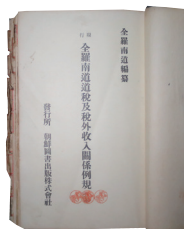 全羅南道編纂
現行
全羅南道道稅及稅外收入關係例規
發行所 朝鮮圖書出版株式會社